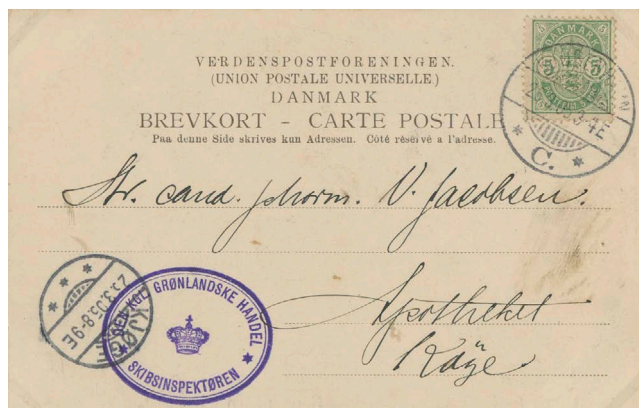 DANMARK
5 5
VERDENSPOSTFORENINGEN.
(UNION POSTALE UNIVERSELLE.)
DANMARK
BREVKORT - CARTE POSTALE
Paa denne Side skrives kun Adressen. Côté réservé a l'adresse.
C.
Hr. cand. pharm. V. Jacobsen.
Apotheket
Köge.
KJØGE
DEN KGL. GRØNLANDSKE HANDEL
SKIBSINSPEKTØREN